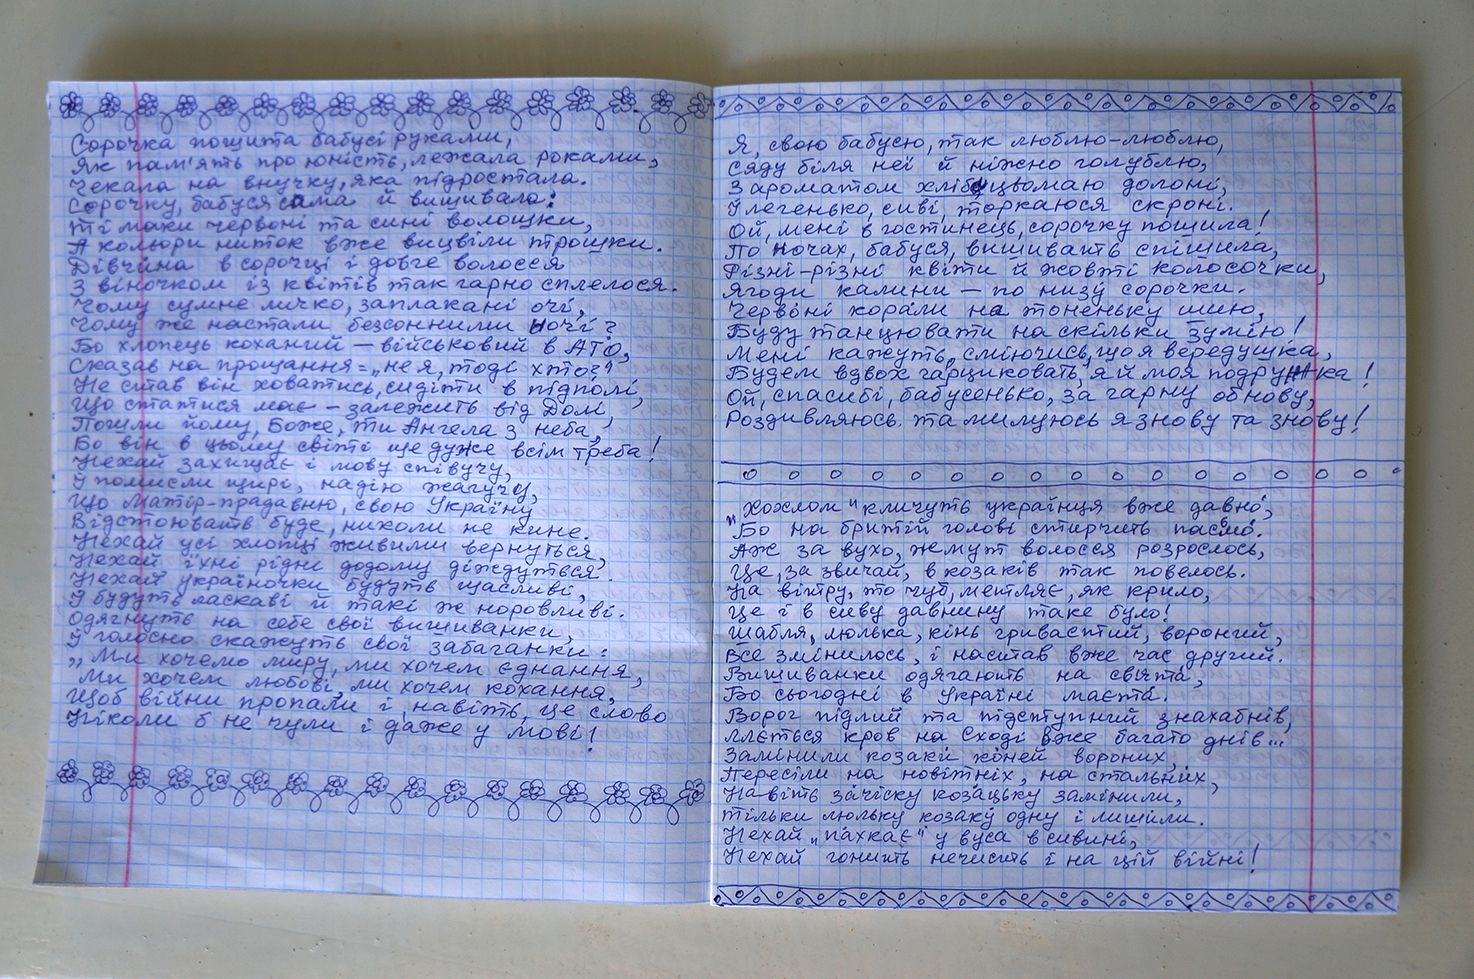 Сорочка пошита бабусі руками,
Як пам'ять про юність, лежала роками,
Чекала на внучку, яка підростала.
Сорочку, бабуся сама й вишивала:
Ті маки червоні та сині волошки,
А кольори ниток вже вицвіли трошки.
Дівчина в сорочці і довге волосся
З віночком із квітів так гарно сплелося.
Чому сумне личко, заплакані очі,
Чому же настали безсонними ночі?
Бо хлопець коханий – військовий в АТО,
Сказав на прощання – „не я, тоді хто?"
Не став він ховатись, сидіти в підполі,
Що статися має – залежить від Долі,
Пошли йому, Боже, ти Ангела з неба,
Бо він в цьому світі ще дуже всім треба!
Нехай захищає і мову співучу,
У помисли щирі, надію жагучу,
Що Матір-прадавню, свою Україну
Відстоювать буде, николи не кине.
Нехай усі хлопці живими вернуться,
Нехай їхні рідні додому діждуться.
Нехай україночки будуть щасливі,
У будуть ласкаві й такі ж норовливі.
Одягнуть на себе свої вишиванки,
У голосно скажуть свої забаганки:
„Ми хочемо миру, ми хочем єднання,
Ми хочем любові, ми хочем кохання,
Щоб війни пропали і навіть, це слово
Ніколи б не чули і даже у мові!
Я, свою бабусю, так люблю-люблю,
Сяду біля неї й ніжно голублю,
З ароматом хлібу цьомаю долоні,
У легенько, сиві, торкаюся скроні.
Ой, мені в гостинець, сорочку пошила!
По ночах, бабуся, вишивать спішила,
Різні-різні квіти й жовті колосочки,
Ягоди калини – по низу сорочки.
Червоні корали на тоненьку шию,
Буду танцювати на скільки зумію!
Мені кажуть, сміючись, що я вередушка,
Будем вдвох гарциковать, я й моя подружка!
Ой, спасибі, бабусенько, за гарну обнову,
Роздивляюсь та милуюсь я знову та знову!
„Хохлом" кличуть українця вже давно,
Бо на бритій голові стирчить пасмо.
Аж за вухо, жмут волосся розрослось,
Це, за звичай, в козаків так повелось.
На вітру, то чуб, метляє, як крило,
Це і в сиву давнину таке було!
Шабля, люлька, кінь гривастий, вороний,
Все змінилось, і настав вже час другий.
Вишиванки одягають на свята,
Бо сьогодні в Україні маєта.
Ворог підлий та підступний знахабнів,
Ллється кров на Сході вже багато днів...
Замінили козаки коней вороних,
Пересіли на новітніх, на стальних,
Навіть зачіску козацьку замінили,
Тільки люльку козаку одну і лишили.
Нехай „пахкає" у вуса в сивині,
Нехай гонить нечисть і на цій війні!